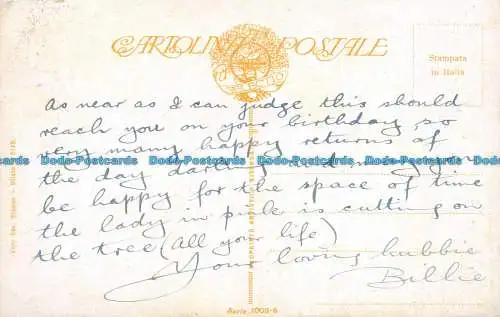 CARTOLINA POSTALE
Stampata
in Italia
As near as I can judge this should
reach you on your birthday, so
very many happy returns of
the day darling and may you
be happy for the space of time
the lady in pink is cutting on
the tree (All your life)
Your loving hubbie
Billie
Dodo-Postcards Dodo-Postcards Dodo-Postcards Dodo-Postcards
Dodo-Postcards Dodo-Postcards Dodo-Postcards Dodo-Postcards
Serie 1008-6